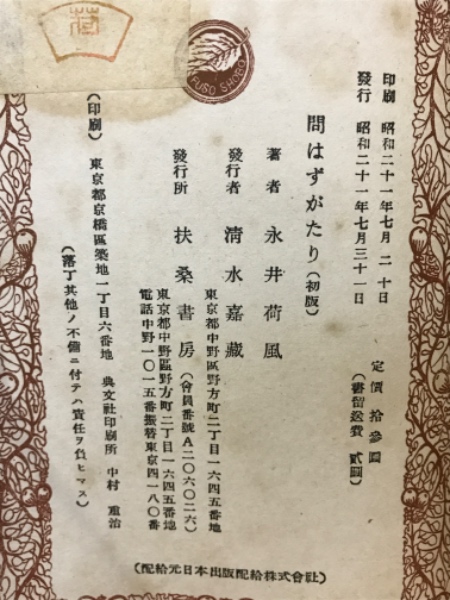 印刷 昭和二十一年七月 二十日
發行 昭和二十一年七月三十一日
定價 拾參圓
(書留送費 貳圓)
問はずがたり(初版)
著者 永井荷風
發行者 清水嘉藏
東京都中野區野方町二丁目一六四五番地
發行所 扶桑書房(會員番號A二〇六〇二六)
東京都中野區野方町二丁目一六四五番地
電話中野一〇一五番振替東京四一八〇番
(印刷) 東京都京橋區築地一丁目六番地 典文社印刷所 中村 重治
(落丁其他ノ不備ニ付テハ責任ヲ負ヒマス)
(配給元日本出版配給株式會社)
FUSO SHOBO
荷